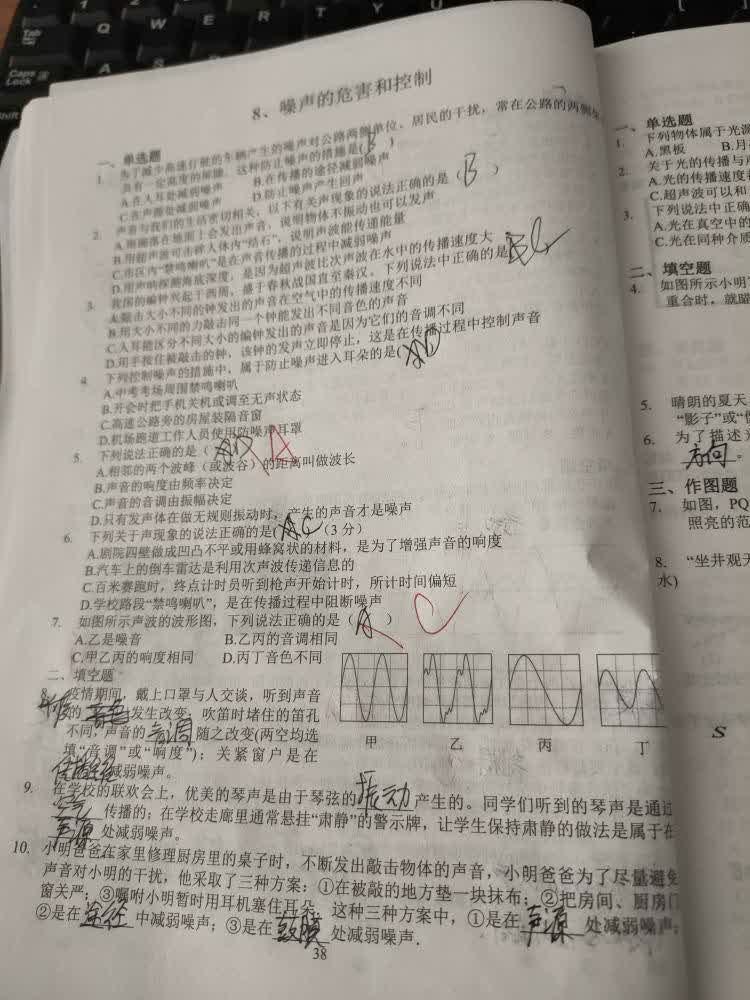 8、噪声的危害和控制
一、单选题
1. 为了减少高速行驶的车辆产生的噪声对公路两侧单位、居民的干扰，常在公路的两侧
具有一定高度的屏障，这种防止噪声的措施是( B )
A.在人耳处减弱噪声 B.在传播的途径减弱噪声
C.在声源处减弱噪声 D.防止噪声产生回声
2. 声音与我们的生活密切相关，以下有关声现象的说法正确的是 ( B )
B.用超声波可击碎人体内"结石"，说明声波能传递能量
C.市区内"禁鸣喇叭"是在声音传播的过程中减弱噪声
D.用声呐探测海底深度，是因为超声波比次声波在水中的传播速度大
3. 我国的编钟兴起于西周，盛于春秋战国直至秦汉。下列说法中正确的是
A.敲击大小不同的钟发出的声音在空气中的传播速度不同
B.用大小不同的力敲击同一个钟能发出不同音色的声音
C.人耳能区分不同大小的编钟发出的声音是因为它们的音调不同
D.用手按住被敲击的钟，该钟的发声立即停止，这是在传播过程中控制声音
4. 下列控制噪声的措施中，属于防止噪声进入耳朵的是(
A.中考考场周围禁鸣喇叭
B.开会时把手机关机或调至无声状态
C.高速公路旁的房屋装隔音窗
D.机场跑道工作人员使用防噪声耳罩
5. 下列说法正确的是（ A
A.相邻的两个波峰（或波谷）的距离叫做波长
B.声音的响度由频率决定
C.声音的音调由振幅决定
D.只有发声体在做无规则振动时，产生的声音才是噪声
6. 下列关于声现象的说法正确的是( C （3 分）
A.剧院四壁做成凹凸不平或用蜂窝状的材料，是为了增强声音的响度
B.汽车上的倒车雷达是利用次声波传递信息的
C.百米赛跑时，终点计时员听到枪声开始计时，所计时间偏短
D.学校路段"禁鸣喇叭"，是在传播过程中阻断噪声
7. 如图所示声波的波形图，下列说法正确的是（ A ） C
A.乙是噪音 B.乙丙的音调相同
C.甲乙丙的响度相同 D.丙丁音色不同
甲 乙 丙 丁
二、填空题
8. 疫情期间，戴上口罩与人交谈，听到声音
的 音色 发生改变，吹笛时堵住的笛孔
不同，声音的 音调 随之改变(两空均选
填"音调"或"响度")；关紧窗户是在
减弱噪声。
9. 在学校的联欢会上，优美的琴声是由于琴弦的 振动 产生的。同学们听到的琴声是通过
空气 传播的；在学校走廊里通常悬挂"肃静"的警示牌，让学生保持肃静的做法是属于在
声源 处减弱噪声。
10. 小明爸爸在家里修理厨房里的桌子时，不断发出敲击物体的声音，小明爸爸为了尽量避免
声音对小明的干扰，他采取了三种方案：①在被敲的地方垫一块抹布；②把房间、厨房门
窗关严；③嘱咐小明暂时用耳机塞住耳朵。这种三种方案中，①是在 声源 处减弱噪声；
②是在 途径 中减弱噪声；③是在 鼓膜 处减弱噪声.
38
一、单选题
1. 下列物体属于光源
A.黑板 B.月
2. 关于光的传播与
A.光的传播速度
C.超声波可以和
3. 下列说法中正确
A.光在真空中的
C.光在同种介质
二、填空题
4. 如图所示小明
重合时，就
5. 晴朗的夏天
"影子"或"
6. 为了描述光
方向 。
三、作图题
7. 如图，PQ
照亮的范
8. "坐井观天
水)
S
Tab
Caps Lock
Q
W
E
R
T
Y
A